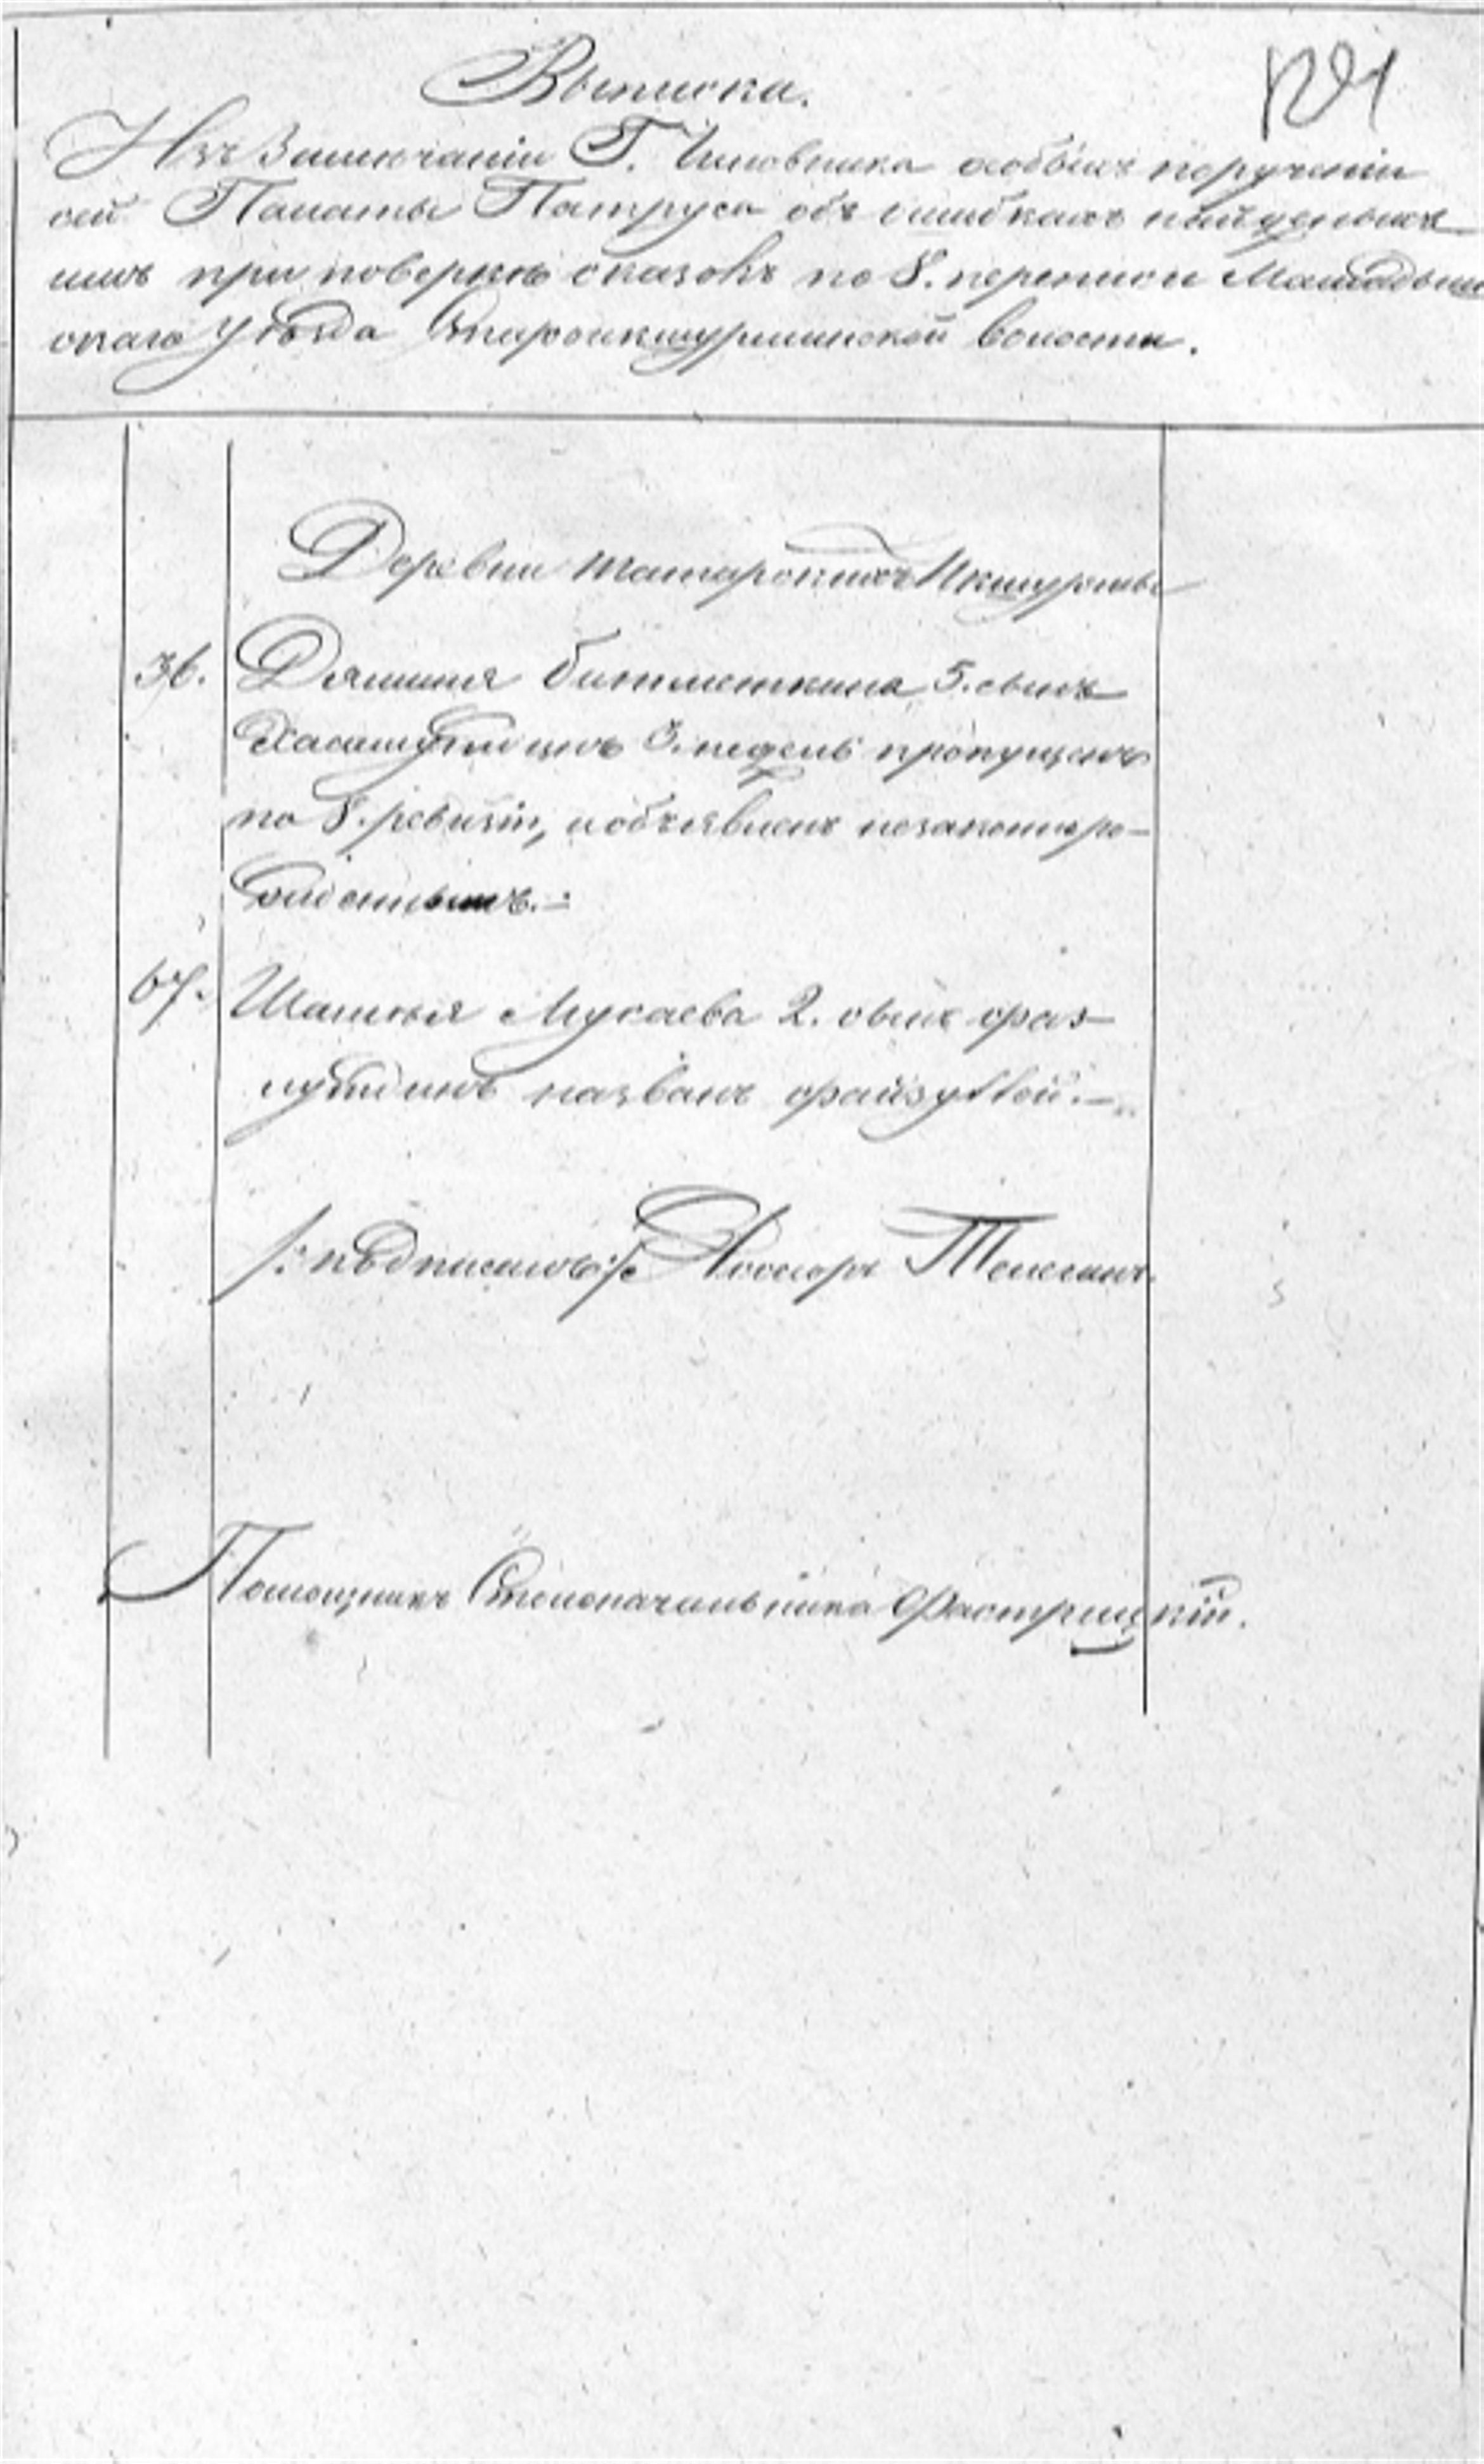 Выписка.
Изъ Замечанiи Г. Чиновника особыхъ порученiи
сей Палаты Патруса объ ошибкахъ найденныхъ
имъ при поверкѣ сказокъ по 8. переписи Мамадыш
скаго Уѣзда Староикшурминской волости.
Деревни татарскихъ Икшурмы
36. Бикметкина 5. сынъ
3. недель пропущенъ
по 8. ревизiи, и объявленъ незаконноро-
жденнымъ.
67. Мусаева 2. сынъ фаз-
лутдинъ названъ файзуллой.
/: подписалъ:/ Ассесоръ Телегинъ.
Помощникъ Столоначальника